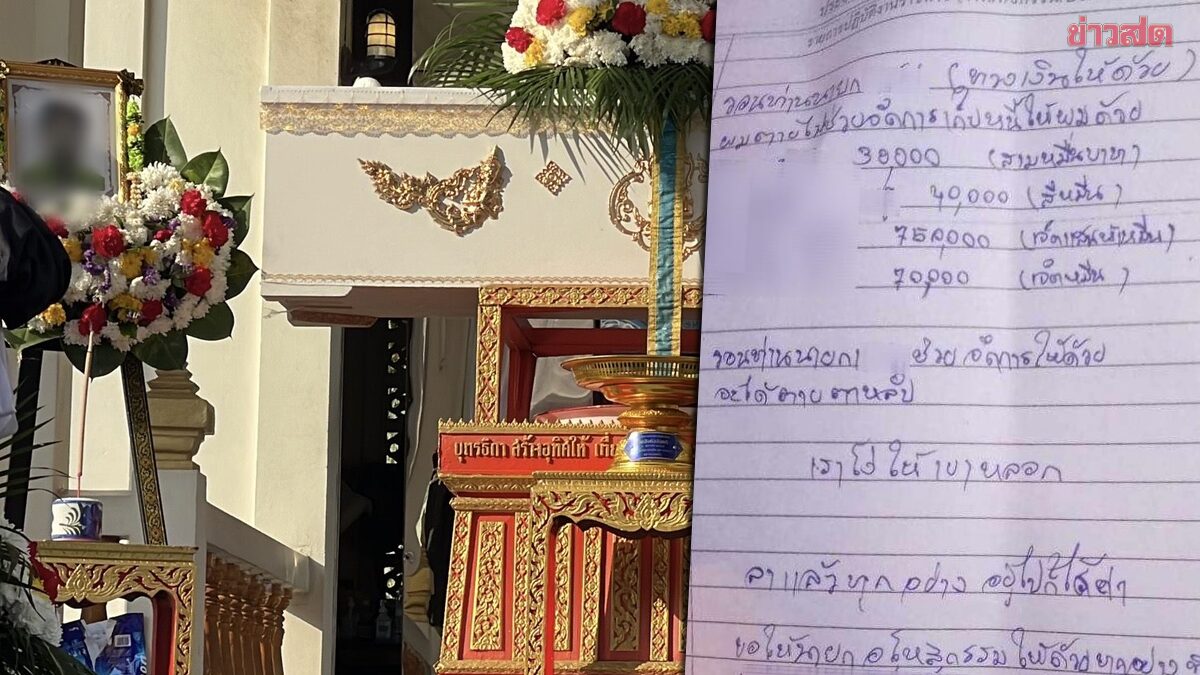 ข่าวสด
(ทวงเงินให้ด้วย)
วอนท่านนายก
ผมตายไปช่วยจัดการเก็บหนี้ให้ผมด้วย
30000 (สามหมื่นบาท)
40,000 (สี่หมื่น)
750,000 (เจ็ดแสนห้าหมื่น)
70,000 (เจ็ดหมื่น)
วอนท่านนายก ช่วยจัดการให้ด้วย
จะได้ตายตาหลับ
เราโง่ให้เขาหลอก
ลาแล้วทุกอย่าง อยู่ไปก็ไร้ค่า
ขอให้นายก อโหสิกรรม ให้ด้วย
บุตรธิดา สร้างอุทิศให้